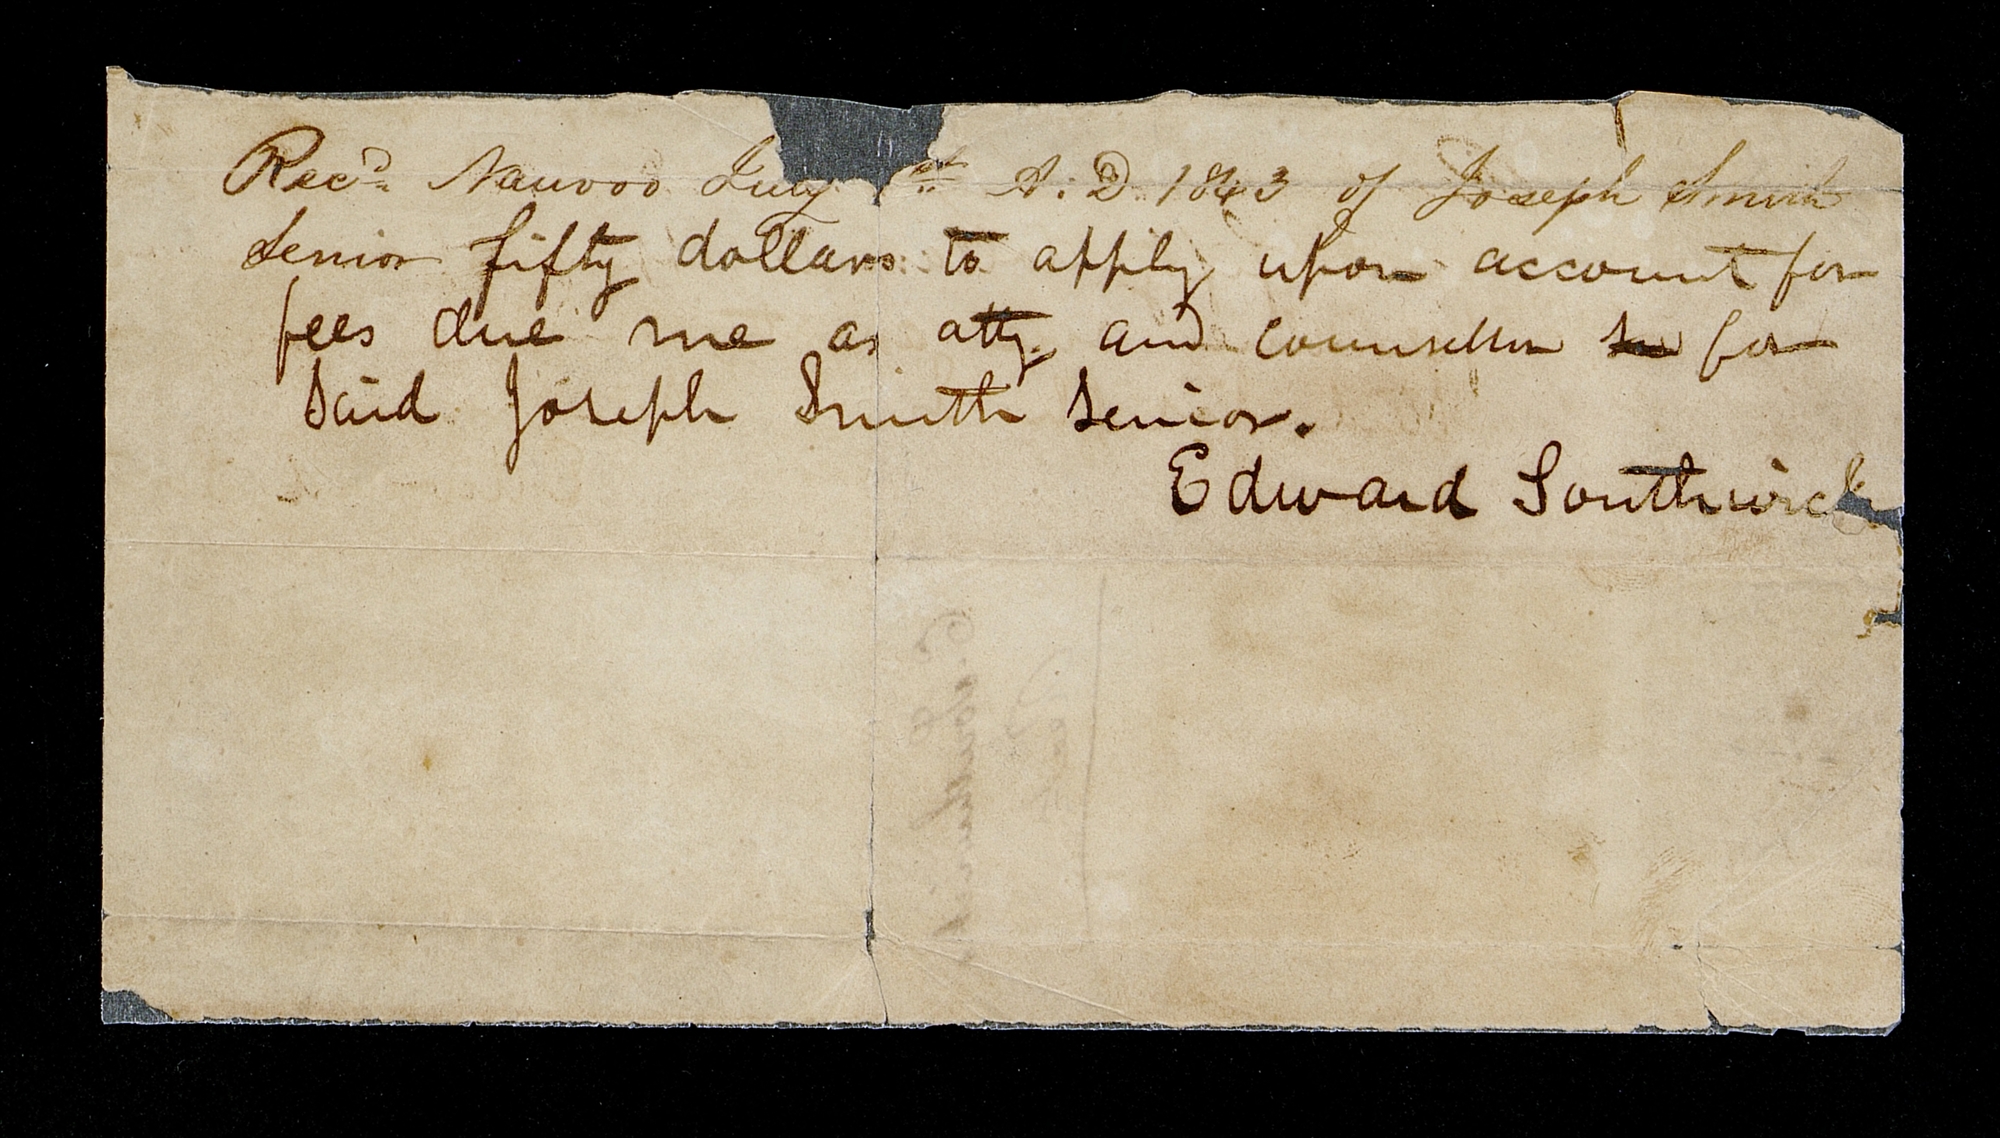 Rec'd Nauvoo July st A. D. 1843 of Joseph Smith
Senior fifty dollars to apply upon account for
fees due me as atty. and counsellor for
said Joseph Smith Senior.
Edward Southwick